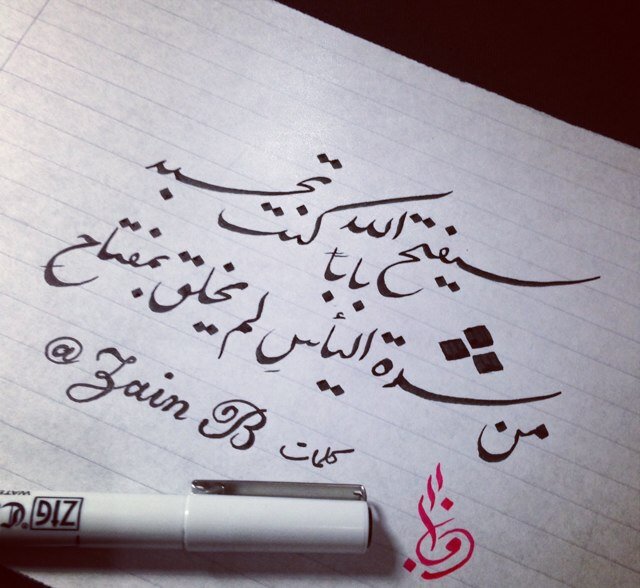 سيفتح الله بابا كنت تحسبه
من شدة اليأسِ لم يخلق بمفتاح
@Zain B كلمات
ZIG